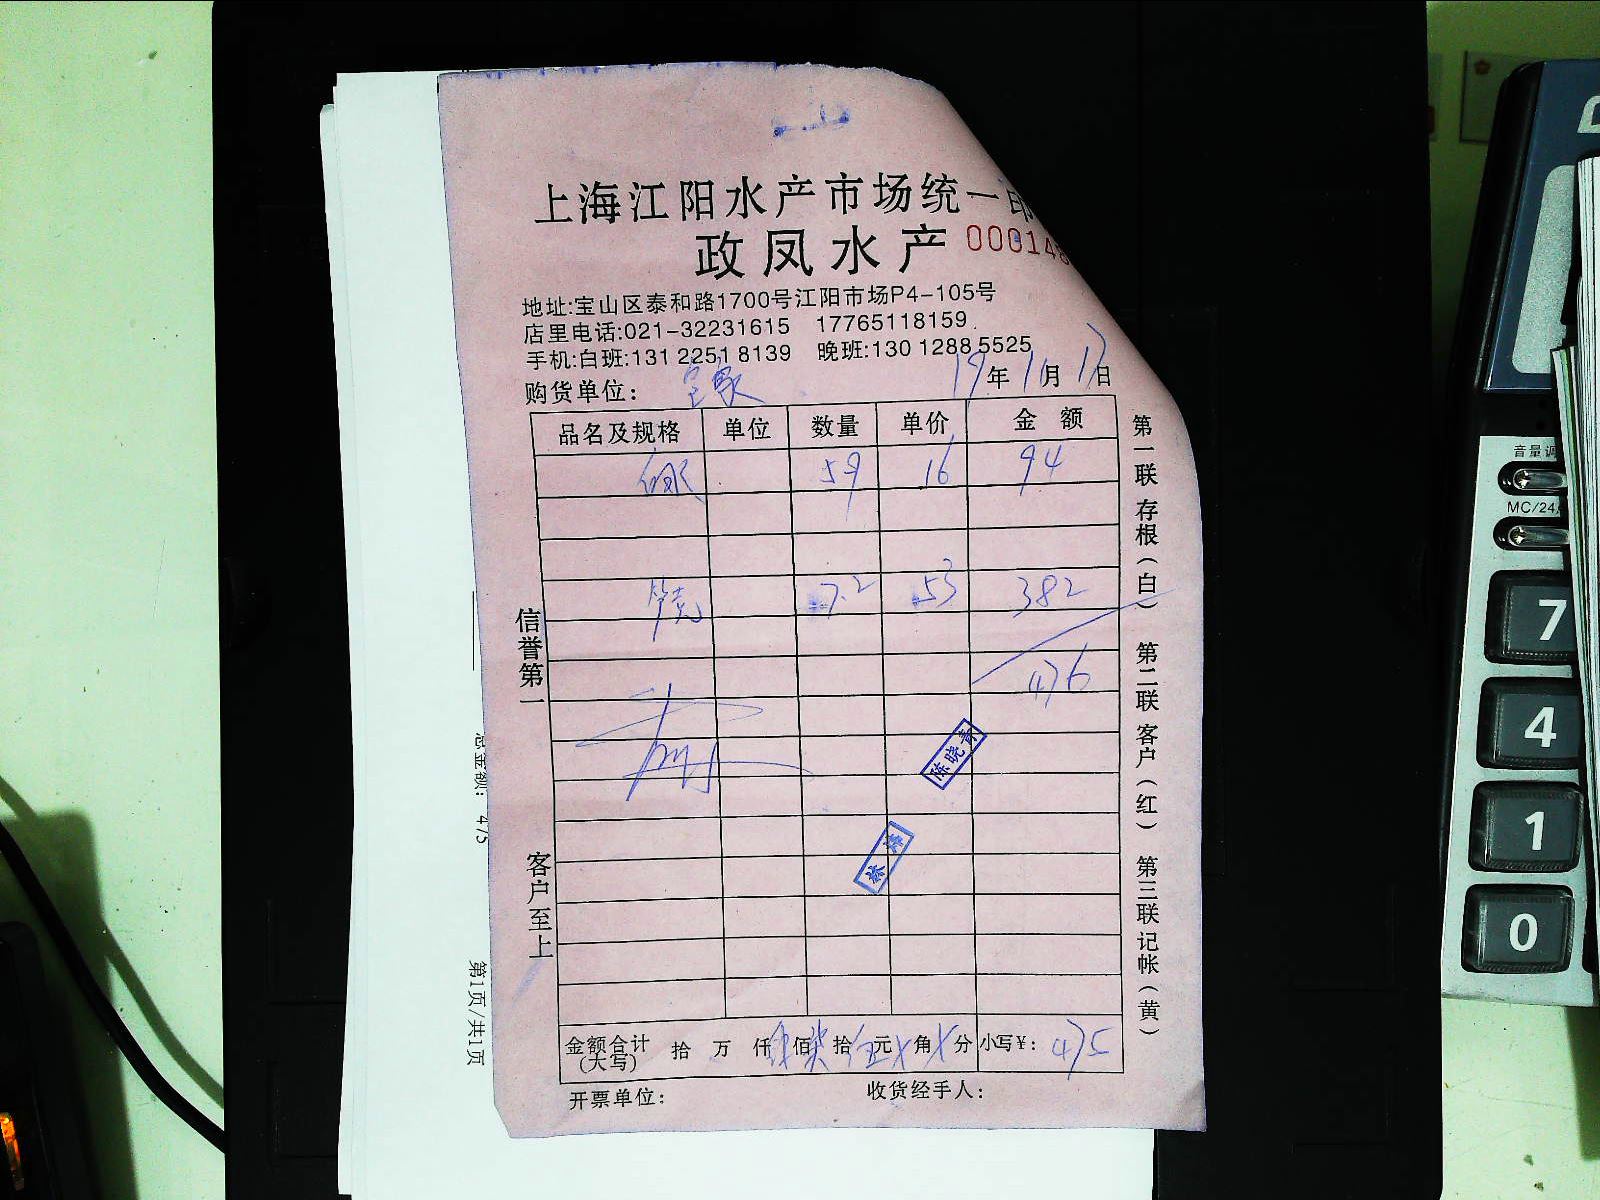 上海江阳水产市场统一印
政凤水产 000148
地址:宝山区泰和路1700号江阳市场P4-105号
店里电话:021-32231615 17765118159
手机:白班:131 2251 8139 晚班:130 1288 5525
购货单位: 19年11月17日
品名及规格 单位 数量 单价 金额
59 16 94
7.2 53 382
476
陈晓青
林海
金额合计(大写) 拾 万 仟 肆佰柒拾伍元X角X分 小写¥: 475
开票单位: 收货经手人:
信誉第一
客户至上
第一联存根(白) 第二联客户(红) 第三联记帐(黄)
总金额: 475
第1页/共1页
音量调
MC/24
7
4
1
0